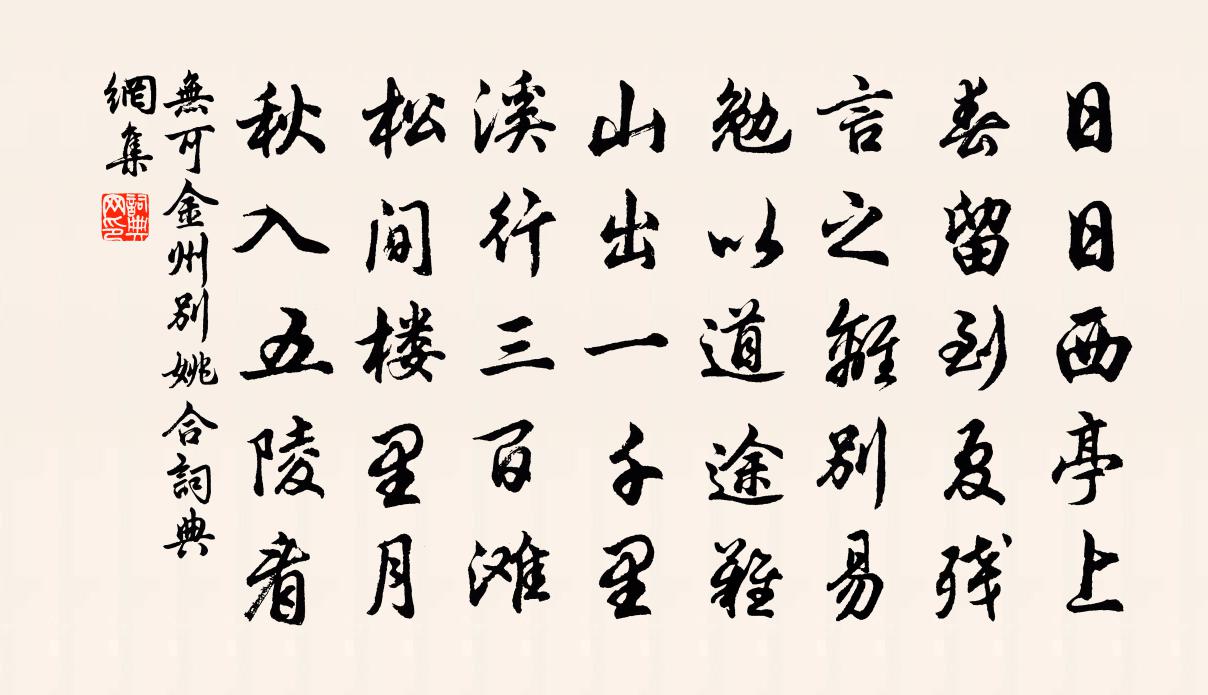 日日西亭上
春留到夏残
言之離别易
勉以道途難
山出一千里
溪行三百滩
松间楼里月
秋入五陵看
無可金州别姚合詞典
網集
詞典网印